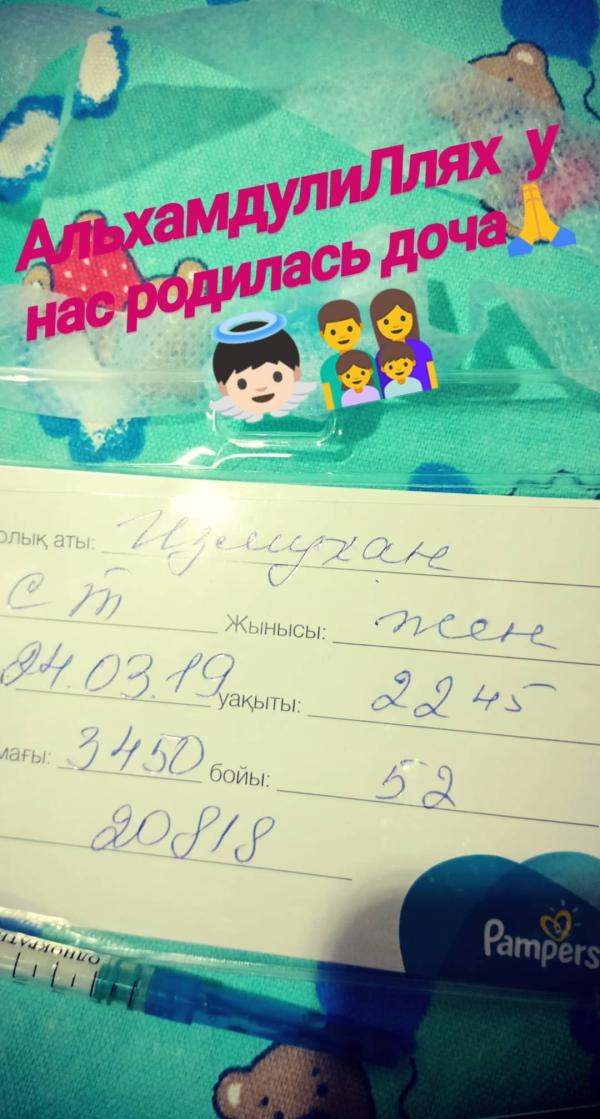 АльхамдулиЛлях у
нас родилась доча🙏
олық аты: Измухан
Жынысы: жен
24.03.19 уақыты: 22 45
мағы: 3450 бойы: 52
20818
Pampers